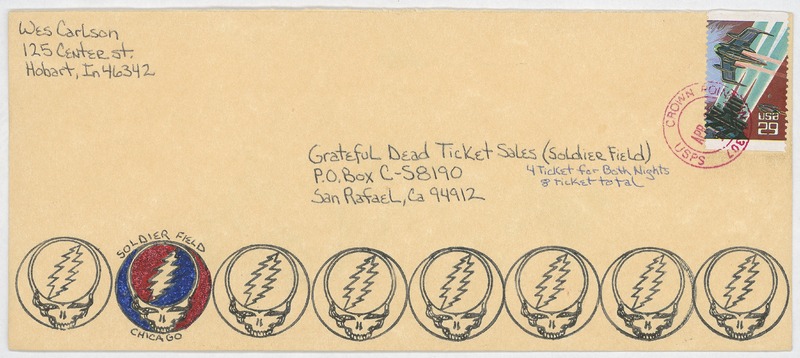 Wes Carlson
125 Center St.
Hobart, In 46342
USA
29
CROWN POINT
APR
307
USPS
Grateful Dead Ticket Sales (Soldier Field)
P.O. Box C-S8190
San Rafael, Ca 94912
4 Ticket for Both Nights
8 Ticket total
SOLDIER FIELD
CHICAGO